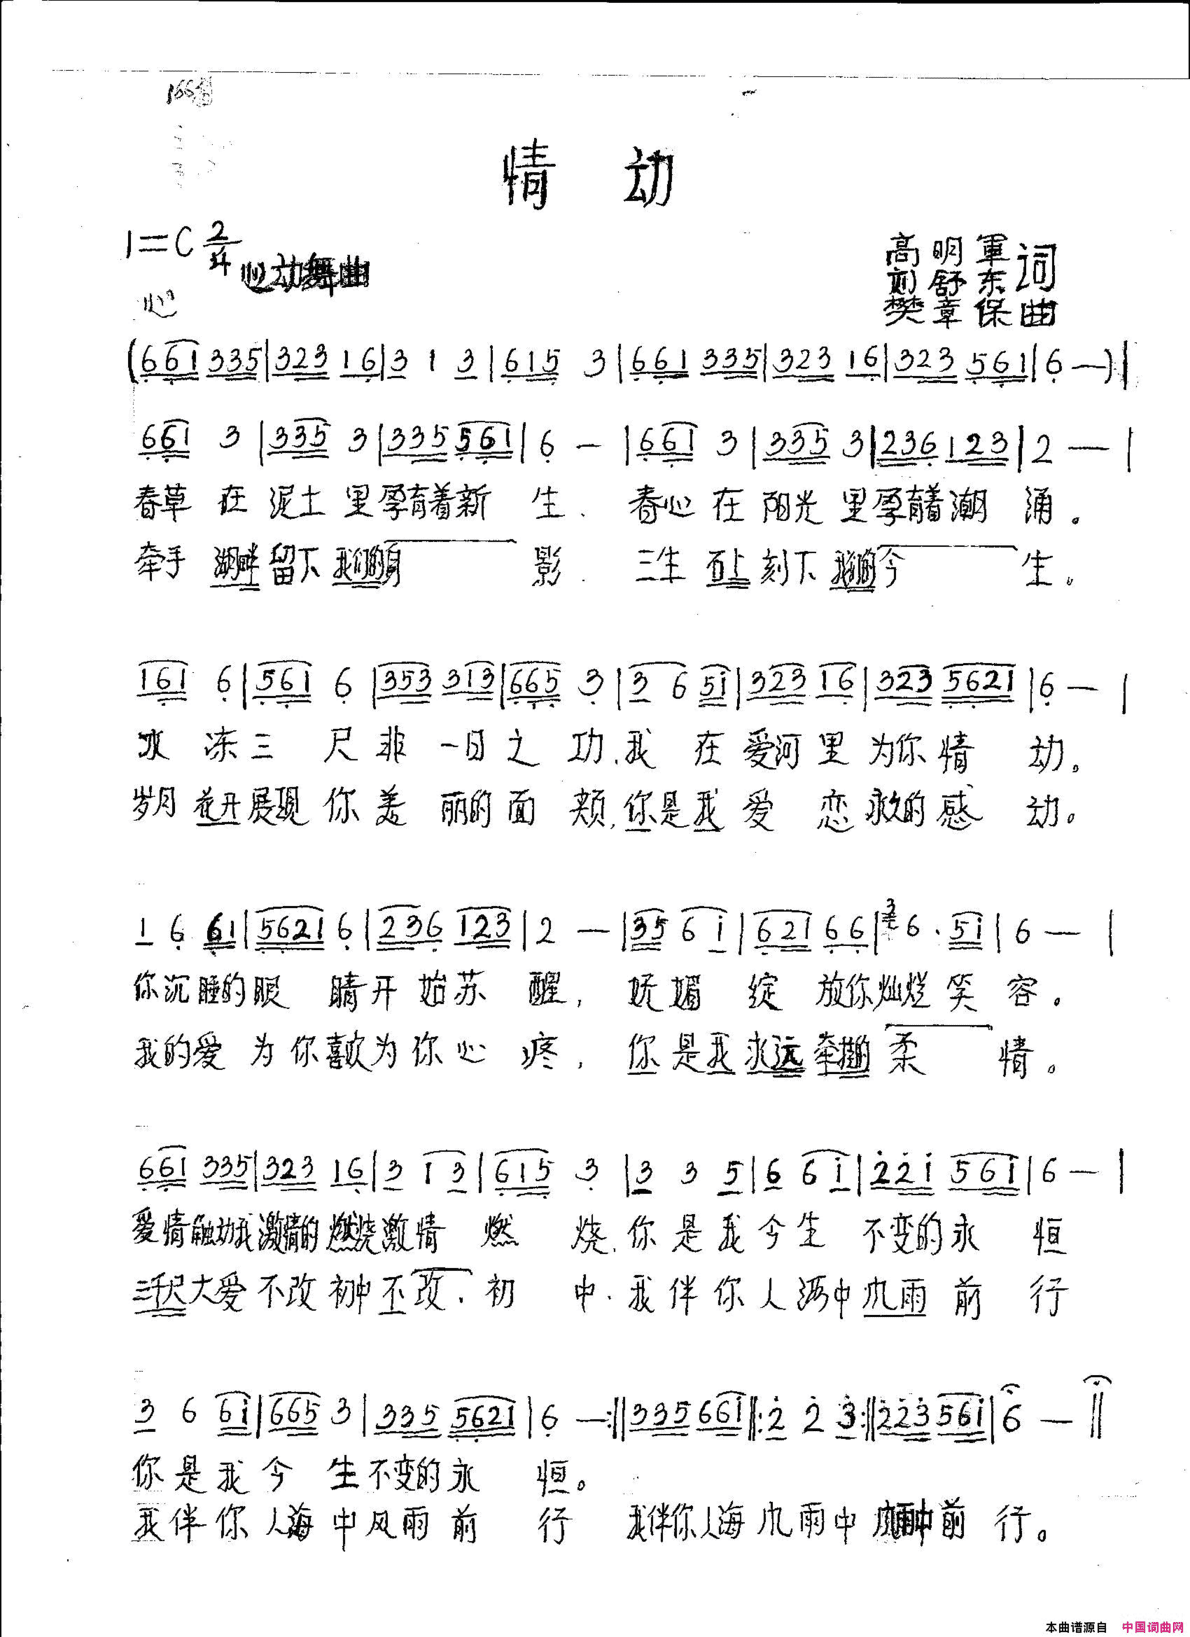 情动
1=C 2/4
心动舞曲
高明軍
刘舒东 词
樊章保 曲
(661 335|323 16|3 1 3|615 3|661 335|323 16|323 561|6 —)|
661 3|335 3|335 561|6 —|661 3|335 3|236 123|2 —|
春草在泥土里孕育着新生.春心在阳光里孕育着潮涌。
牵手湖畔留下我们的身影.三生石上刻下我们的今生。
161 6|561 6|353 313|665 3|3 6 5i|323 16|323 5621|6 —|
冰冻三尺非一日之功.我在爱河里为你情动。
岁月花开展现你美丽的面颊,你是我爱恋永久的感动。
1 6 61|5621 6|236 123|2 —|35 6 i|621 66|6. 5i|6 —|
你沉睡的眼睛开始苏醒,妩媚绽放你灿烂笑容。
我的爱为你喜欢为你心疼,你是我永远牵挂的柔情。
661 335|323 16|3 1 3|615 3|3 3 5|6 6 i|22i 56i|6 —|
爱情触动我激情的燃烧激情燃烧.你是我今生不变的永恒
三千尺大爱不改初中不改.初中.我伴你人海中风雨前行
3 6 6i|665 3|335 5621|6 —:||335 66i||:2 2 3:||223 56i|6 —||
你是我今生不变的永恒。
我伴你人海中风雨前行 我伴你人海风雨中风雨中前行。
本曲谱源自 中国词曲网